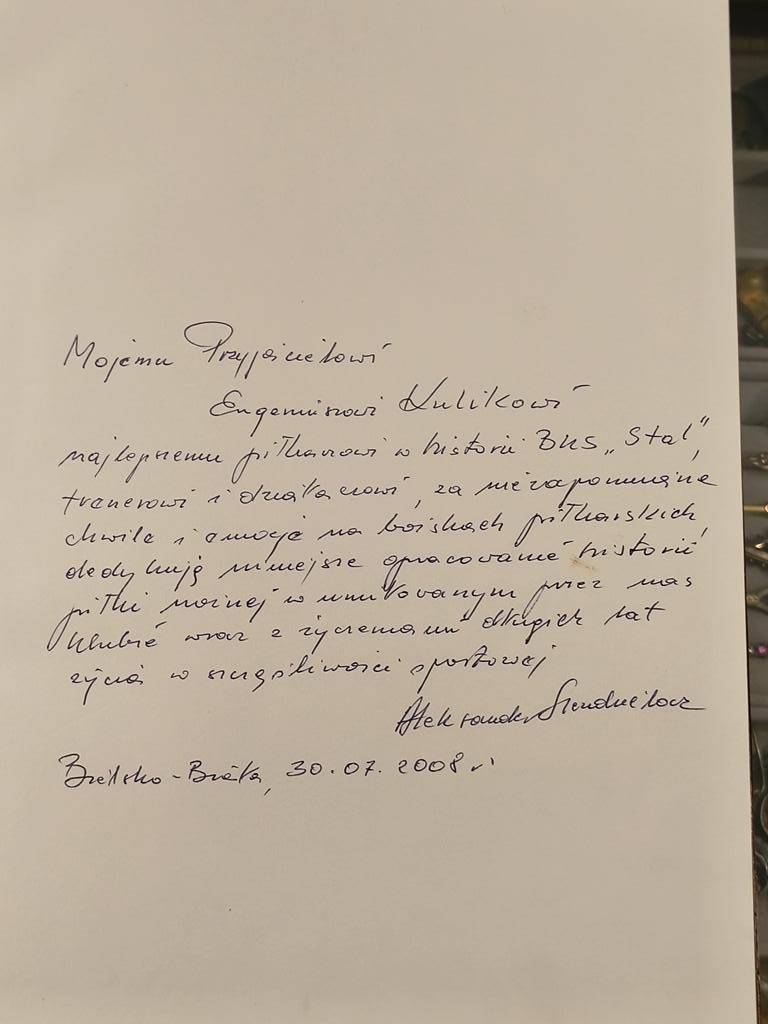 Mojemu Przyjacielowi
Eugeniuszowi Kulikowi
najlepszemu piłkarzowi w historii BKS „Stal”,
trenerowi i działaczowi, za niezapomniane
chwile i emocje na boiskach piłkarskich,
dedykuję niniejsze opracowanie historii
piłki nożnej w umiłowanym przez nas
Klubie wraz z życzeniami długich lat
życia w szczęśliwości sportowej
Aleksander
Bielsko-Biała, 30.07.2008 r.